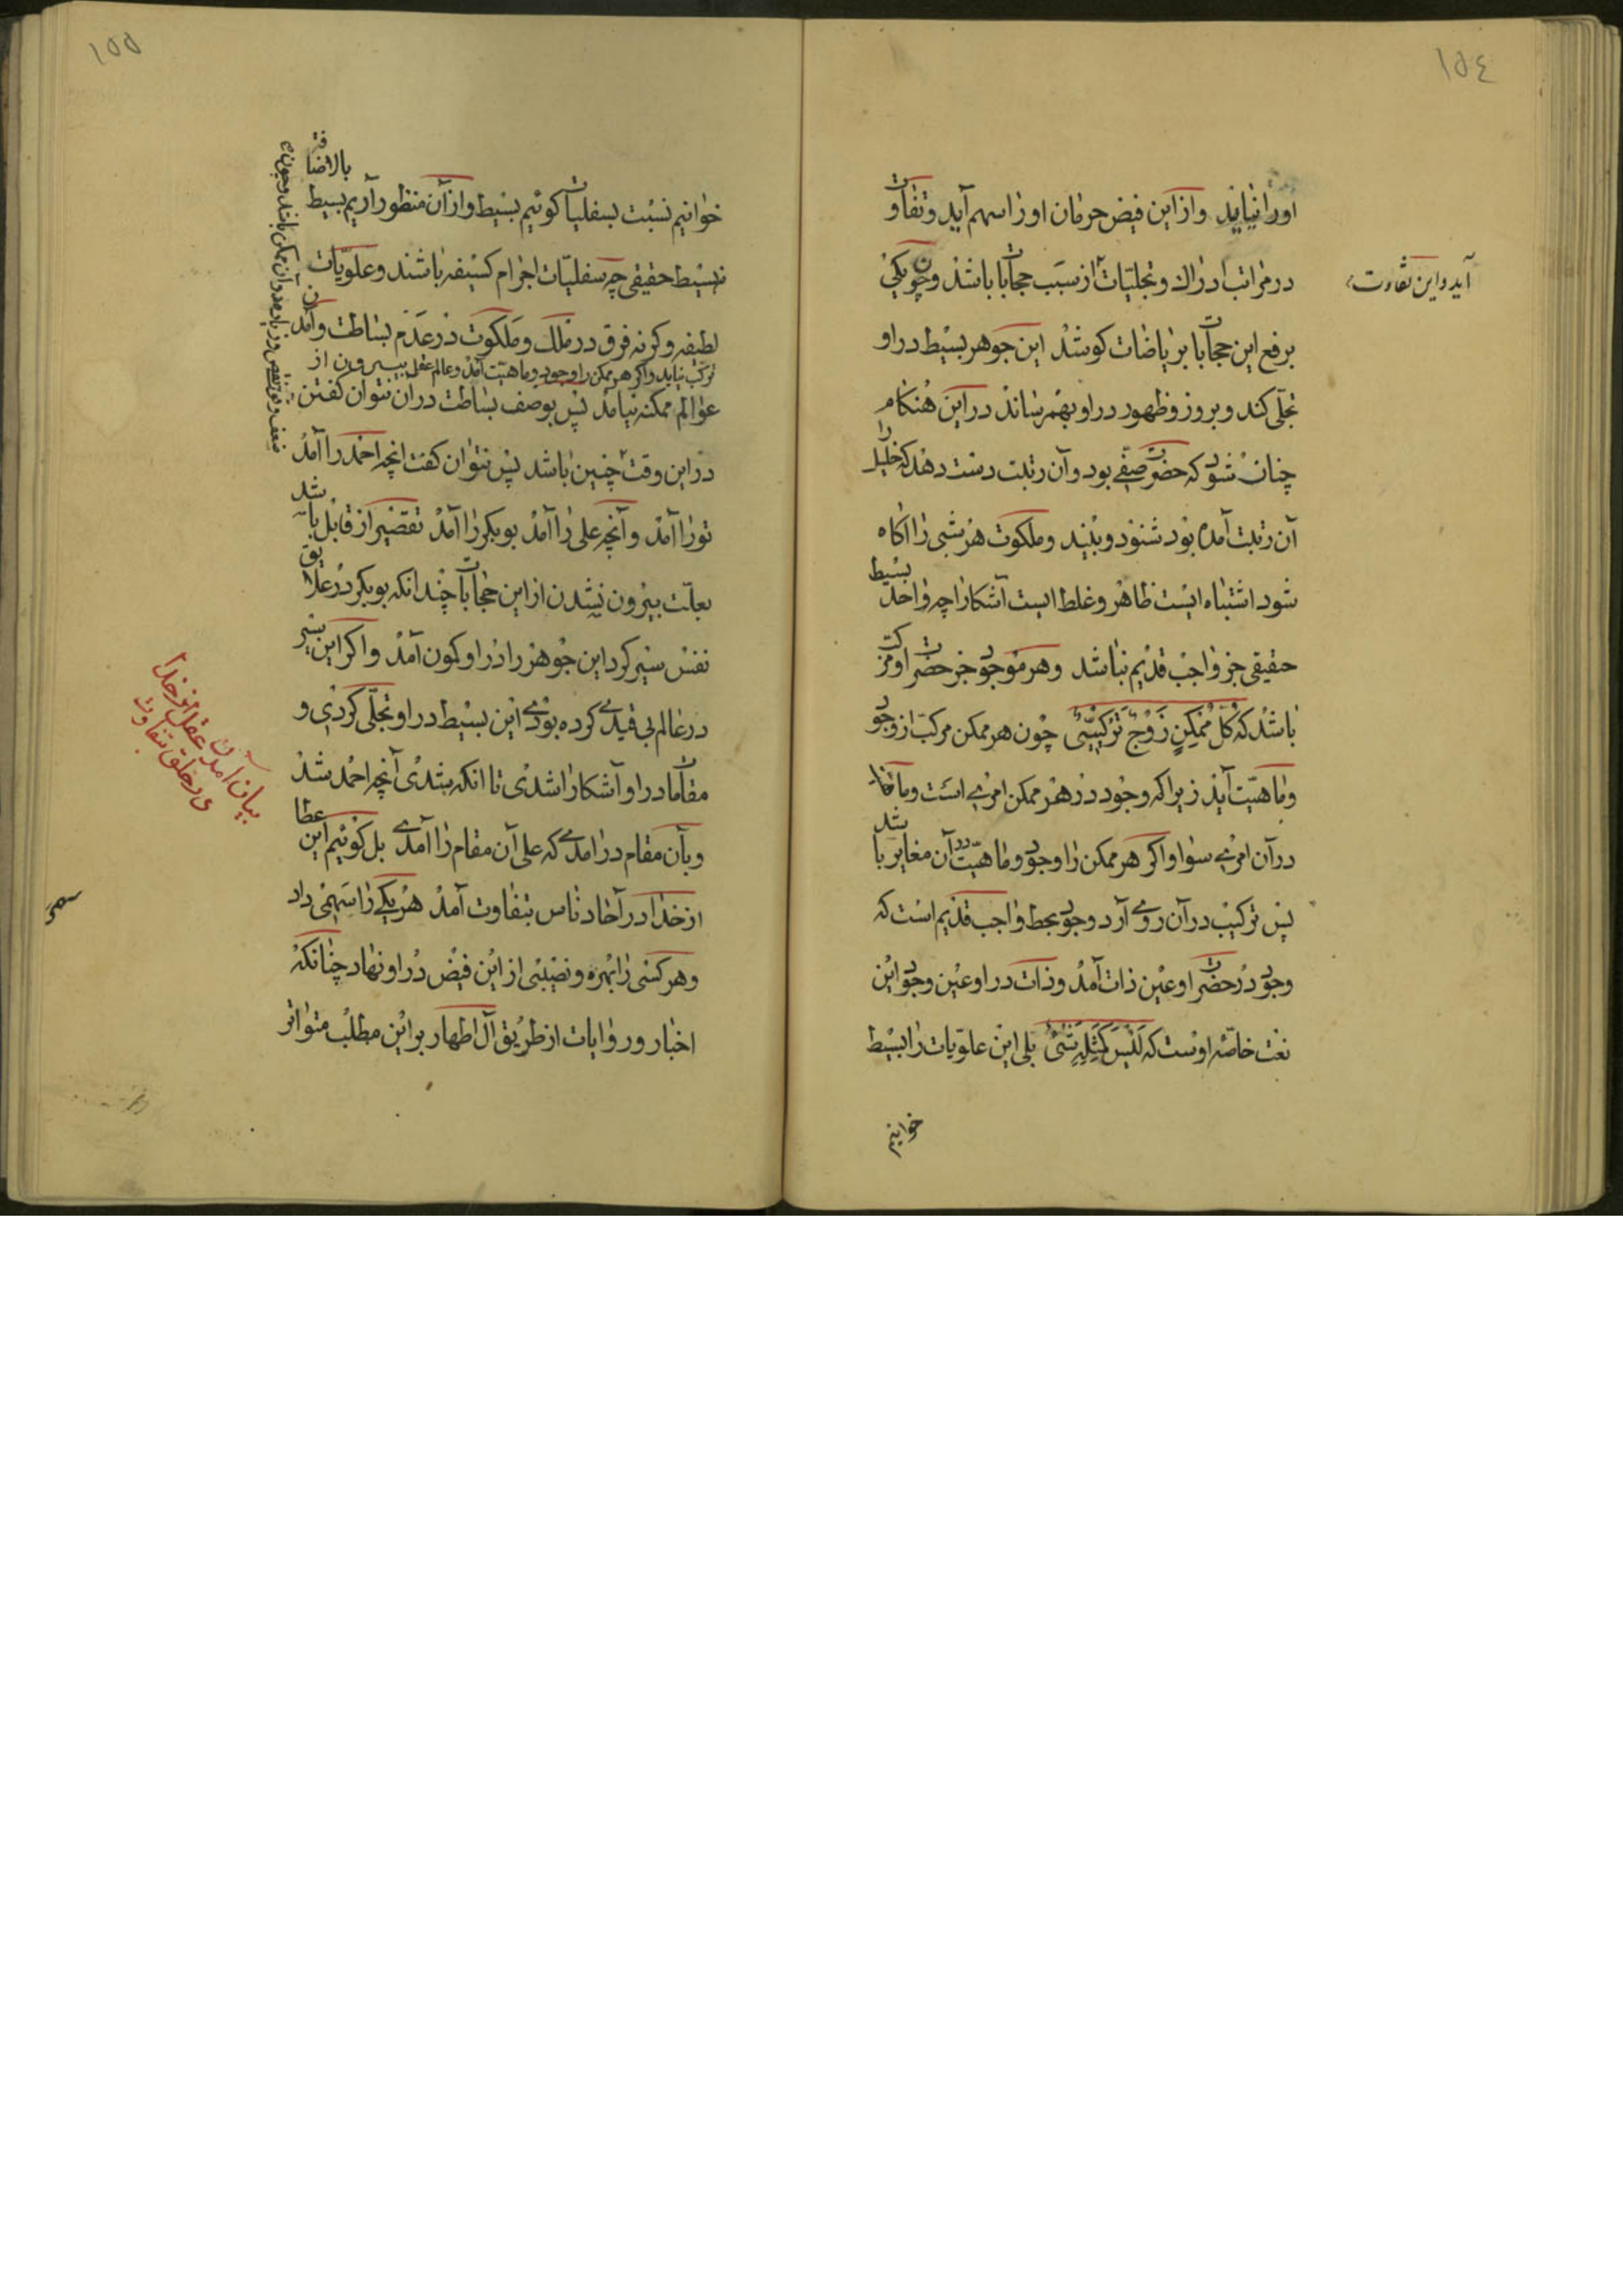 ١٥٤
اورا نیاید واز این فیض حرمان اورا سهم آید وتفاوت
در مراتب ادراك وتجلیات از سبب حجابات باشد وچون یکی
آید واین تفاوت
برفع این حجابات بریاضات کوشد این جوهر بسیط در او
تجلی کند وبروز وظهور در او بهم رساند در این هنکام
چنان شود که حضرت صفی بود وآن رتبت دست دهد که خلیل را
آن رتبت آمده بود شنود وبیند وملکوت هر شیی را آکاه
شود اشتباه ایست ظاهر وغلط ایست آشکارا چه واحد بسیط
حقیقی جز واجب قدیم نباشد وهر موجود جز حضرت او مرکب
باشد که كُلُّ مُمْكِنٍ زَوْجٌ تَرْكِيبِيٌّ چون هر ممکن مرکب از وجود
وماهیت آید زیرا که وجود در هر ممکن امریی است وماهیت
در آن امریی سوا واکر هر ممکن را وجود وماهیت در آن مغایر باشد
پس ترکیب در آن روی آرد وجود بحط واجب قدیم است که
وجود در حضرت او عین ذات آمد وذات در او عین وجود این
نعت خاصه اوست که لَيْسَ كَمِثْلِهِ شَيْءٌ بلی این علویات را بسیط
خوانیم
١٥٥
خوانیم نسبت بسفلیات کوئیم بسیط واز آن منظور آریم بسیط بالاضافة
نه بسیط حقیقی چه سفلیات اجرام کثیفه باشند وعلویات
لطیفه وکرنه فرق در ملك وملکوت در عدم بساطت وآمدن
ترکب نیاید واکر هر ممکن را وجود وماهیت آمد وعالم عقل بیرون از
عوالم ممکنه نیامد پس بوصف بساطت در آن نتوان کفتن
در این وقت چنین باشد پس نتوان کفت انچه احمد را آمد
تورا آمد وآنچه علی را آمد بوبکر را آمد تقصیر از قابل باشد
بعلت بیرون نشدن از این حجابات چندانکه بوبکر در علایق
نفس سیر کرد این جوهر را در او کمون آمد واکر این سیر
در عالم بی قیدی کرده بودی این بسیط در او تجلی کردی و
مقامات در او آشکارا شدی تا انکه بشدی آنچه احمد شد
وبآن مقام در امدی که علی آن مقام را آمدی بل کوئیم این عطا
از خدا در آحاد ناس بتفاوت آمد هر یکی را سهمی داد
وهر کسی را بهره ونصیبی از این فیض در او نهاد چنانکه
اخبار وروایات از طریق آل اطهار بر این مطلب متواتر
بیان آمدن عقل از خدا
در خلق بتفاوت